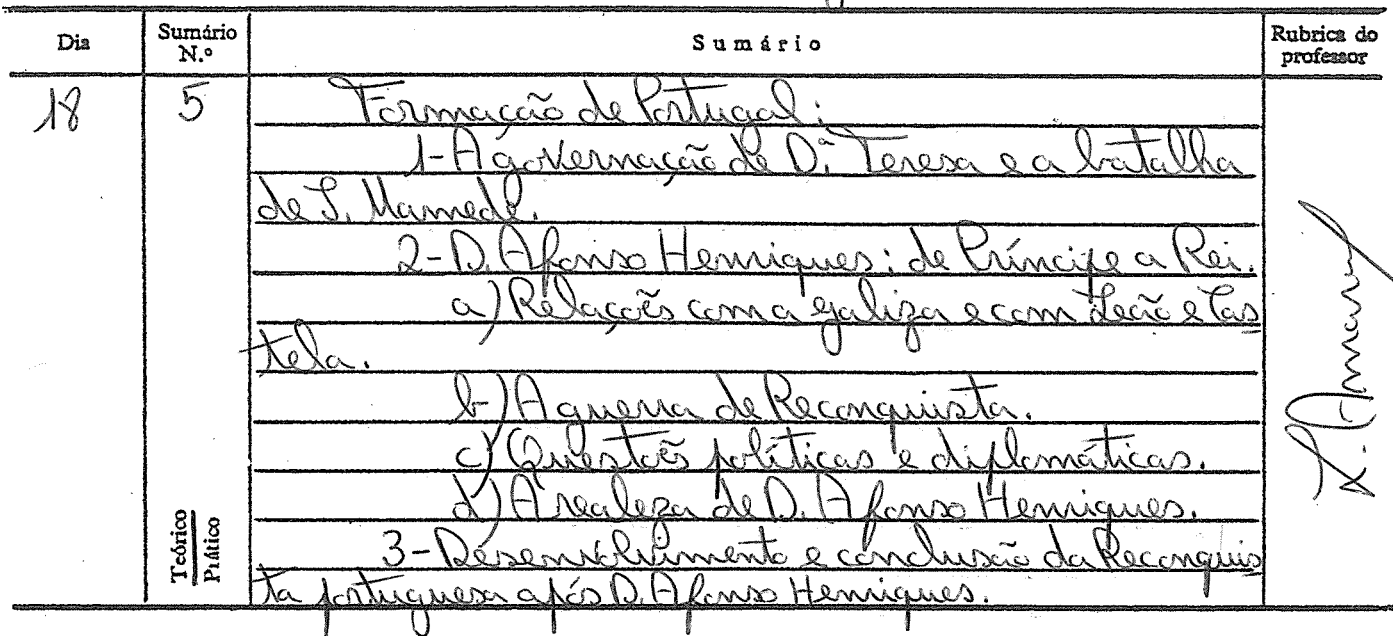 Dia
Sumário N.º
Sumário
Rubrica do professor
18
5
Formação de Portugal:
1-A governação de D.ª Teresa e a batalha
de S. Mamede.
2-D. Afonso Henriques: de Príncipe a Rei.
a) Relações com a galiza e com Leão e Cas
tela.
b) A guerra de Reconquista.
c) Questões políticas e diplomáticas.
d) A realeza de D. Afonso Henriques.
3-Desenvolvimento e conclusão da Reconquis
ta portuguesa após D. Afonso Henriques.
Teórico
Prático
L. Amaral